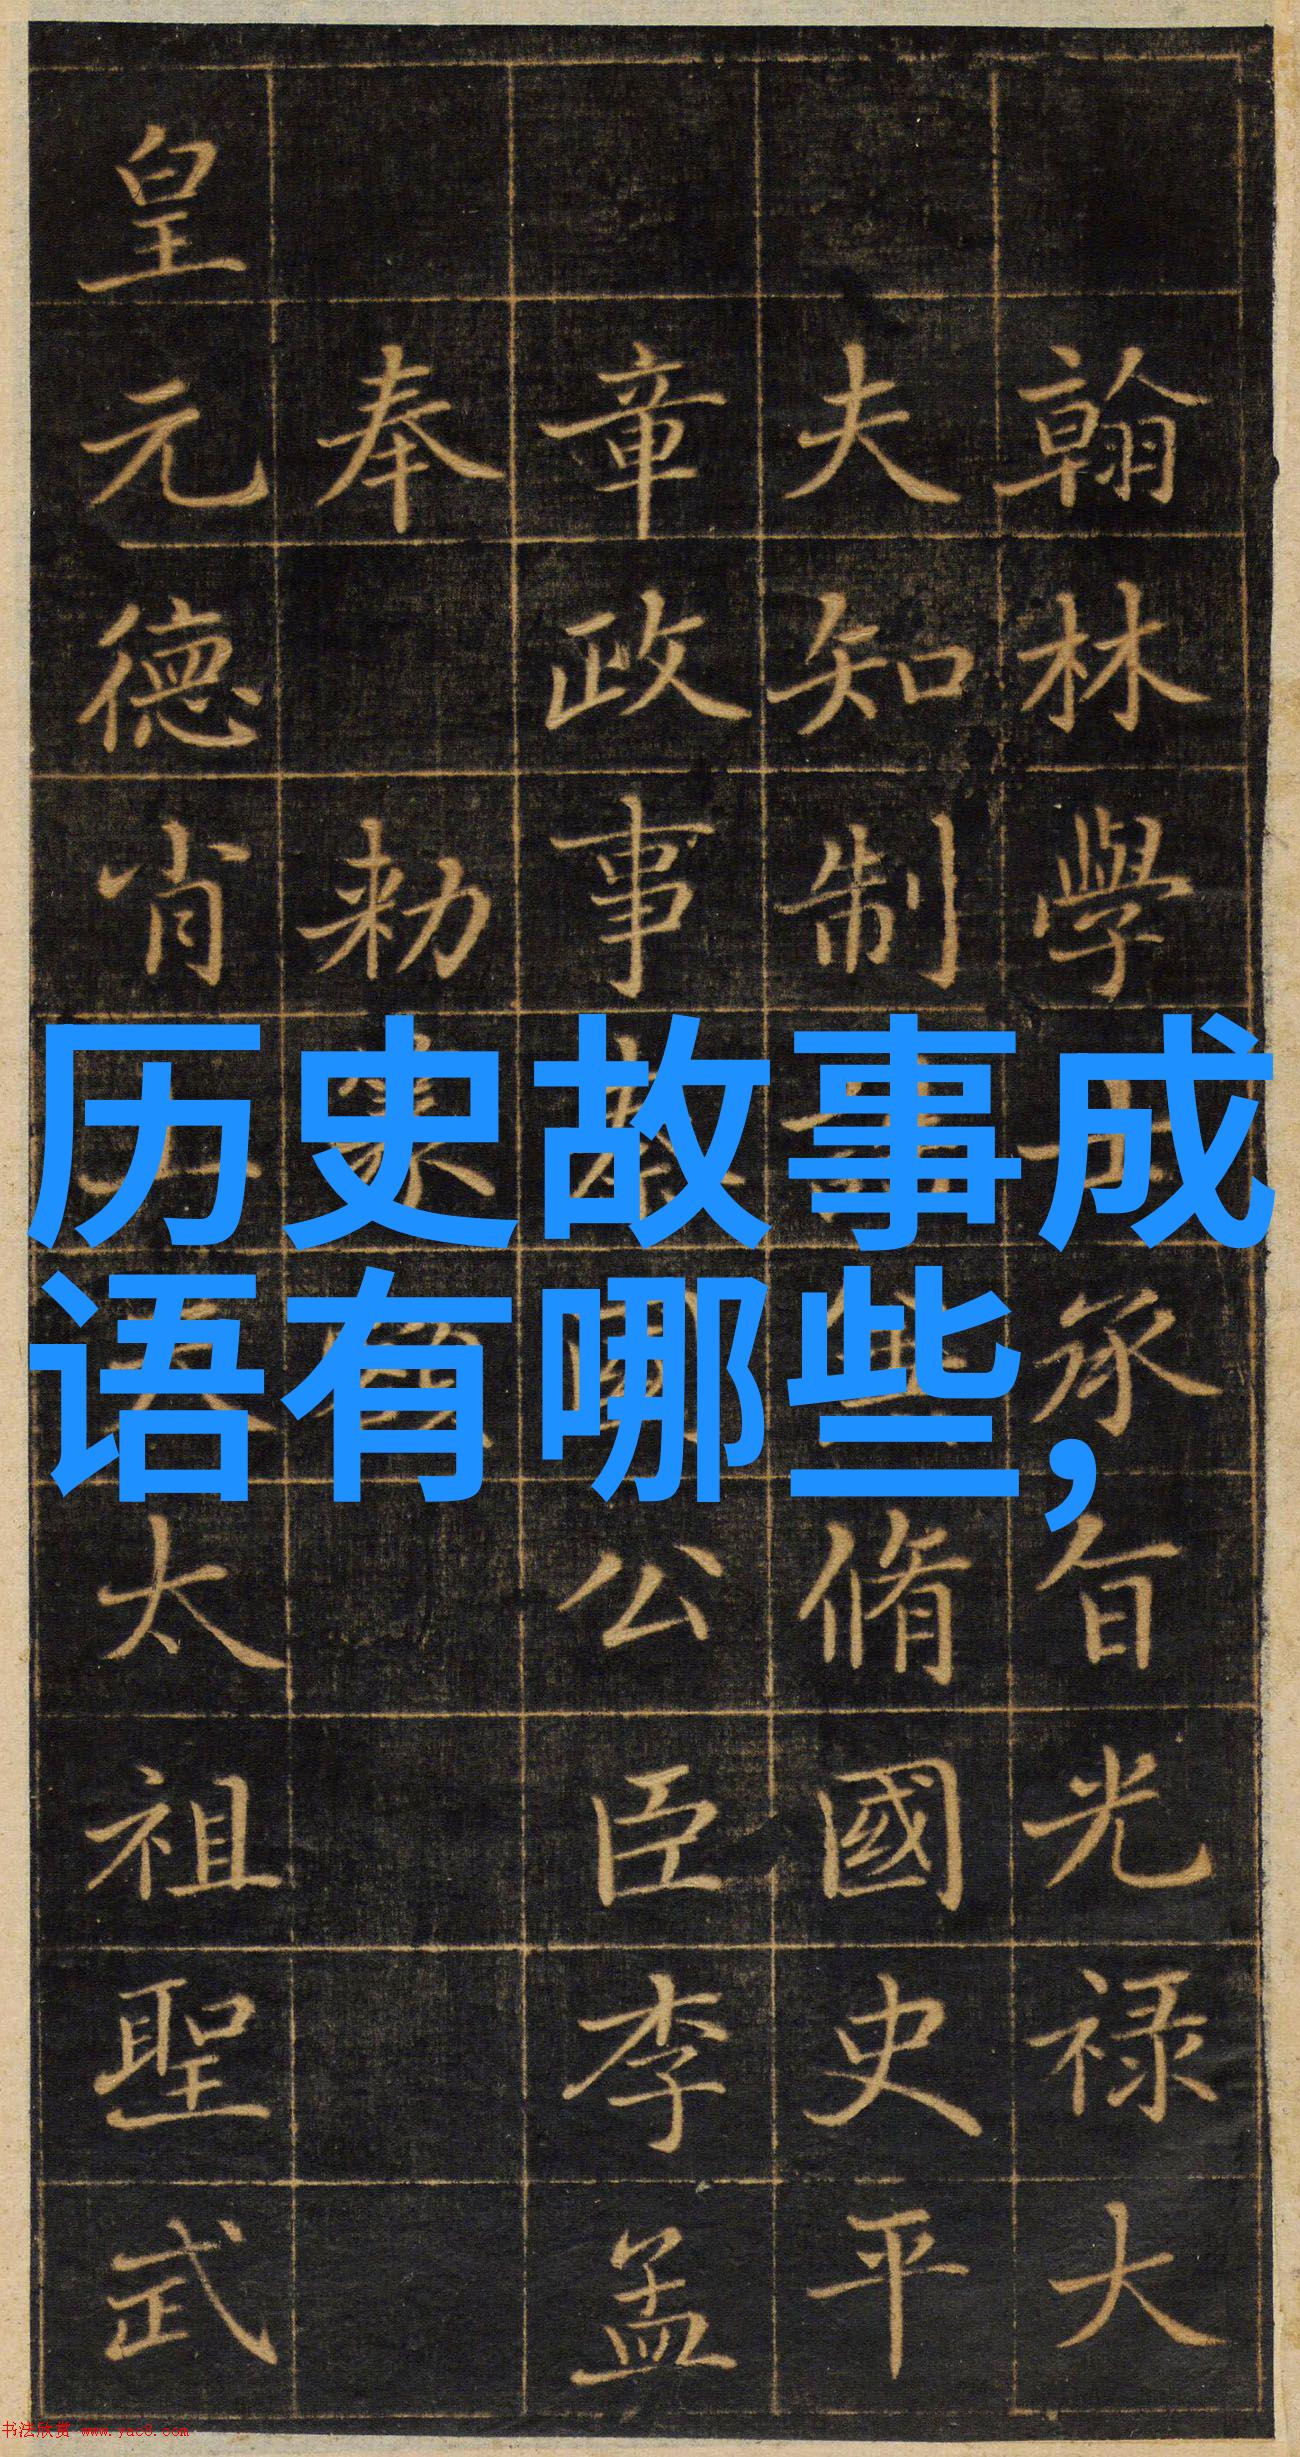 翰林學承旨光禄大
夫知制脩國史平
章政事公臣李孟
奉勑
皇元德肖太祖聖武
历史故事成
语有哪些,
书法欣赏 www.yac8.com